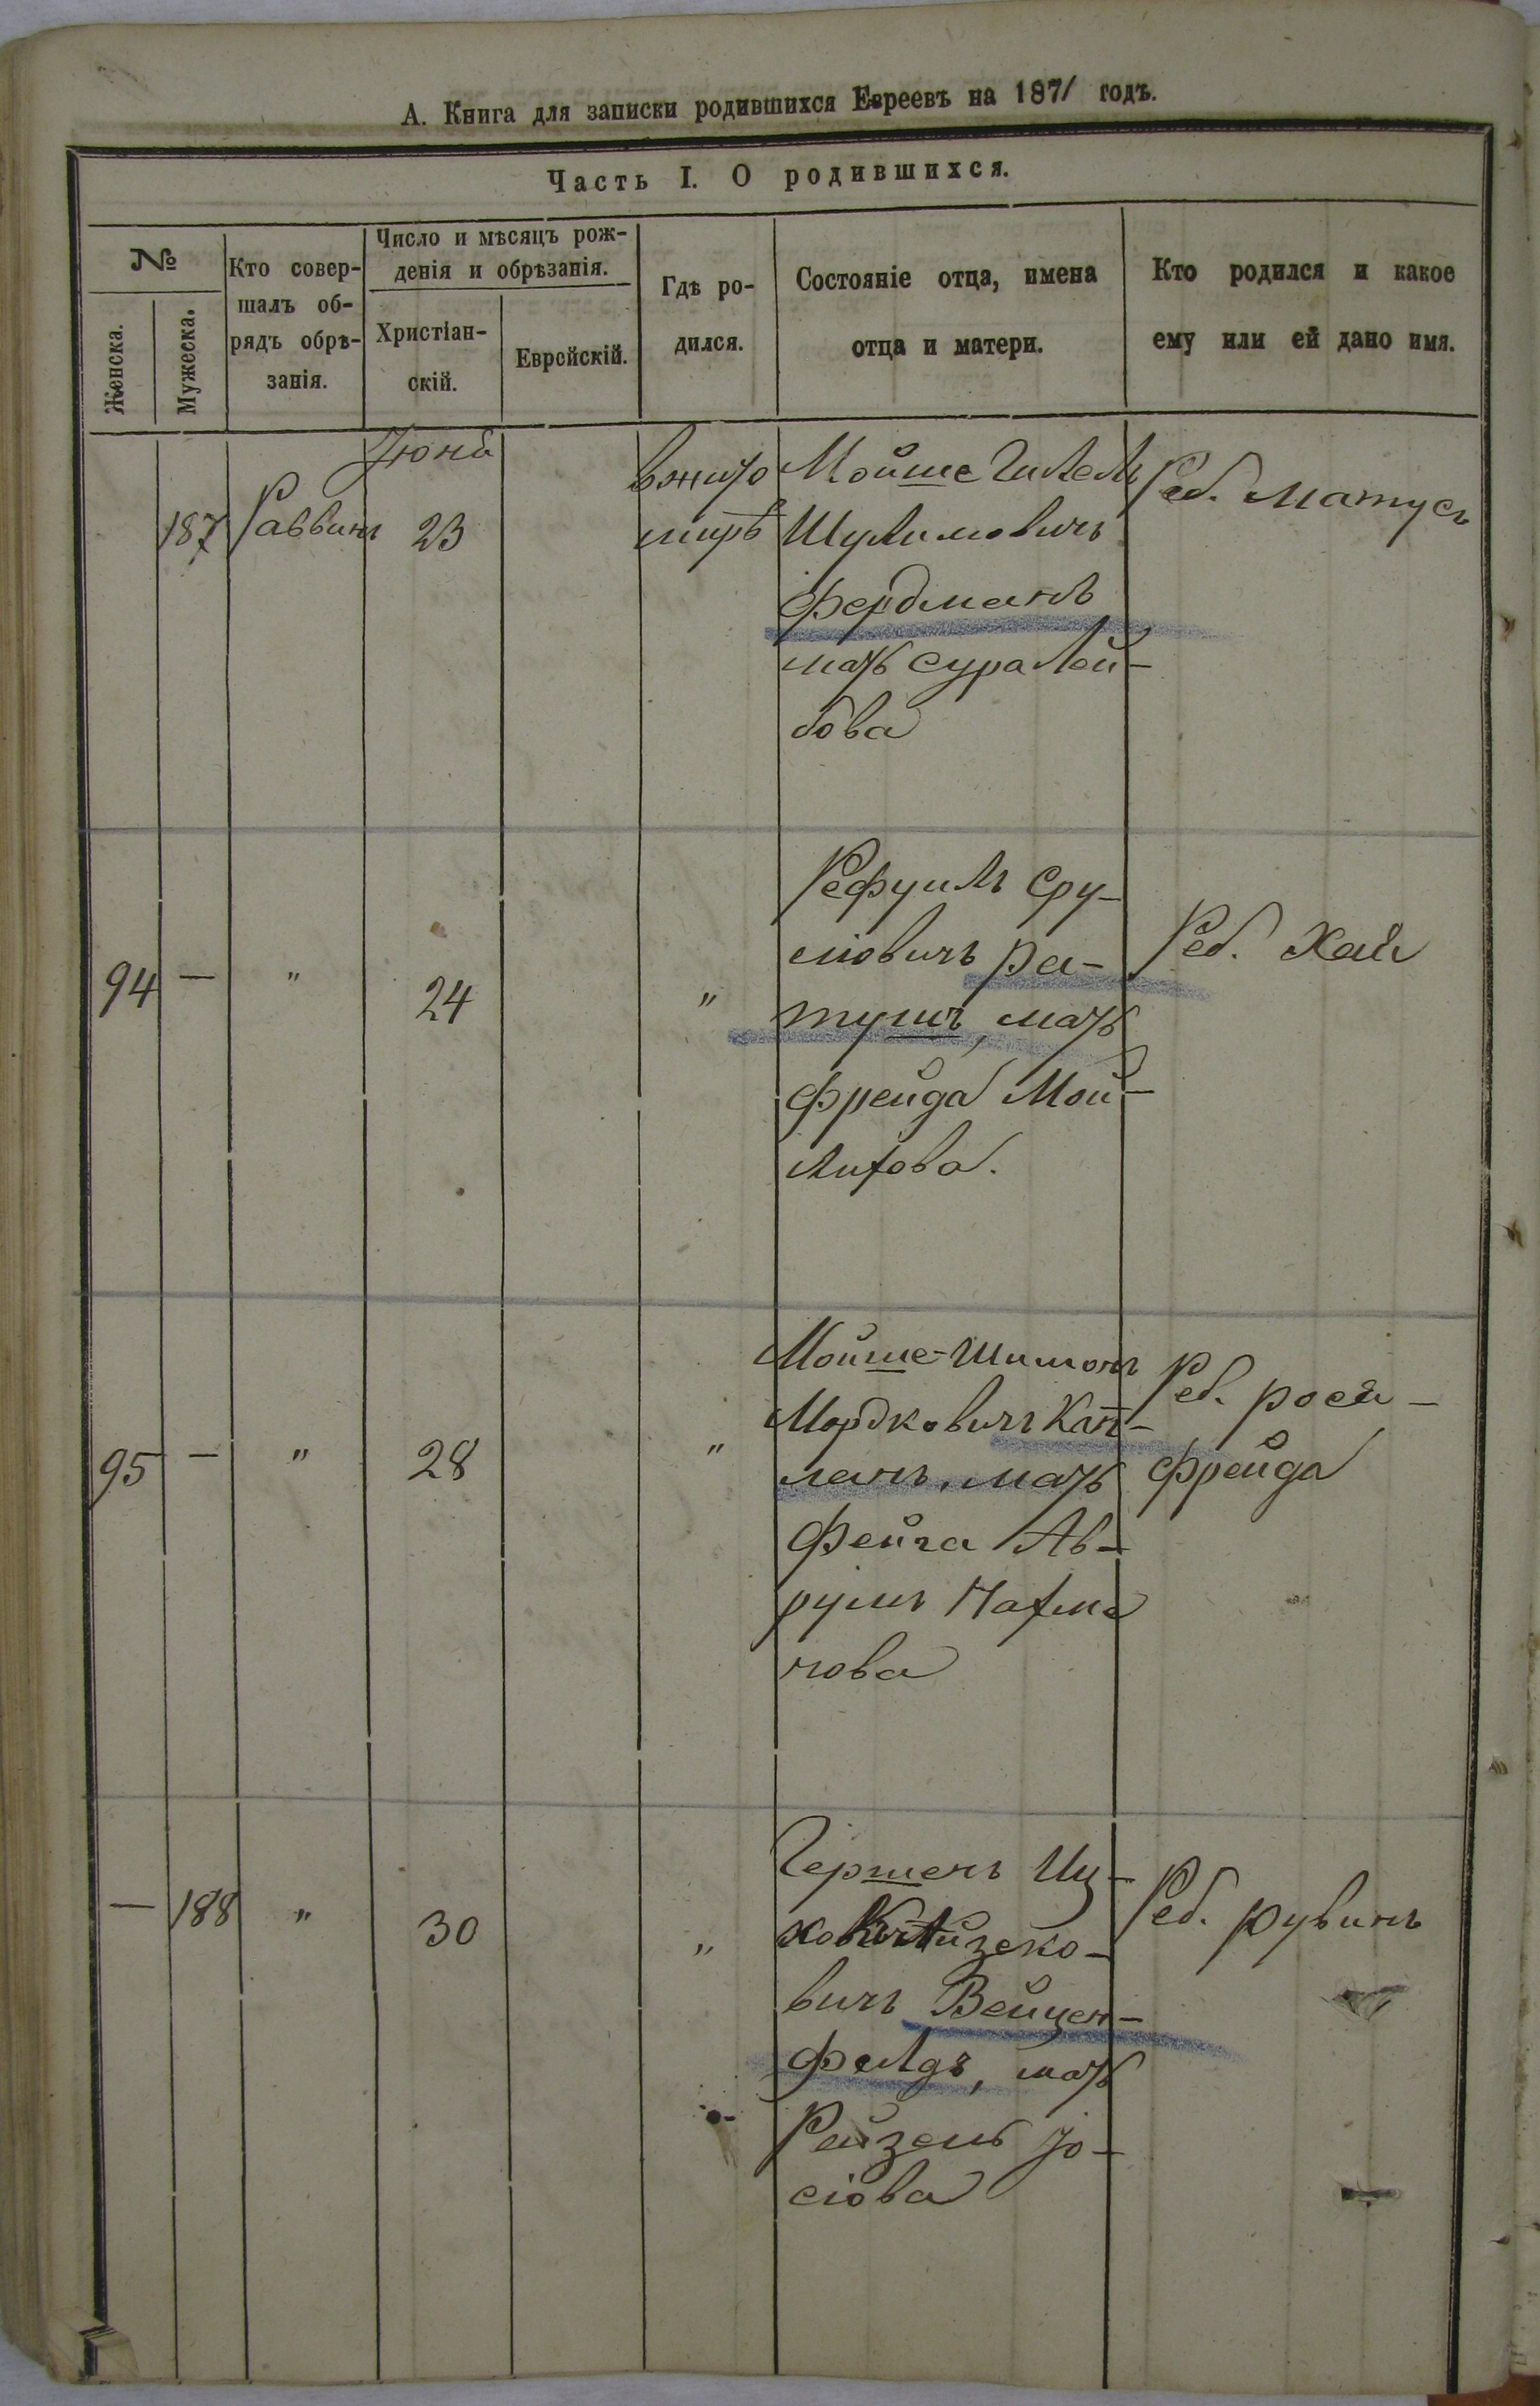 А. Книга для записки родившихся Евреевъ на 1871 годъ.
Часть I. О родившихся.
№
Женска.
Мужеска.
Кто совер-
шалъ об-
рядъ обрѣ-
занія.
Число и мѣсяцъ рож-
денія и обрѣзанія.
Христіан-
скій.
Еврейскій.
Гдѣ ро-
дился.
Состояніе отца, имена
отца и матери.
Кто родился и какое
ему или ей дано имя.
187
Раввинъ
Іюнь
23
в жито
мирѣ
Мойше Гилель
Шулимовичъ
Фердманъ
мать Сура Лей-
бова
Реб. Матусъ
94 —
"
24
"
Рефуилъ Сру-
лiовичъ Ра-
тушъ, мать
Фрейда Мой-
лихова.
Реб. Хая
95 —
"
28
"
Мойше-Шимонъ
Мордковичъ Кап-
ланъ, мать
Фейга Ав-
румъ Нахма
нова
Реб. Рося -
Фрейда
— 188
"
30
"
Гершенъ Иц-
ко-
вичъ Вейцен-
фелдъ, мать
Рейзель Іо-
сіова
Реб. Рувинъ